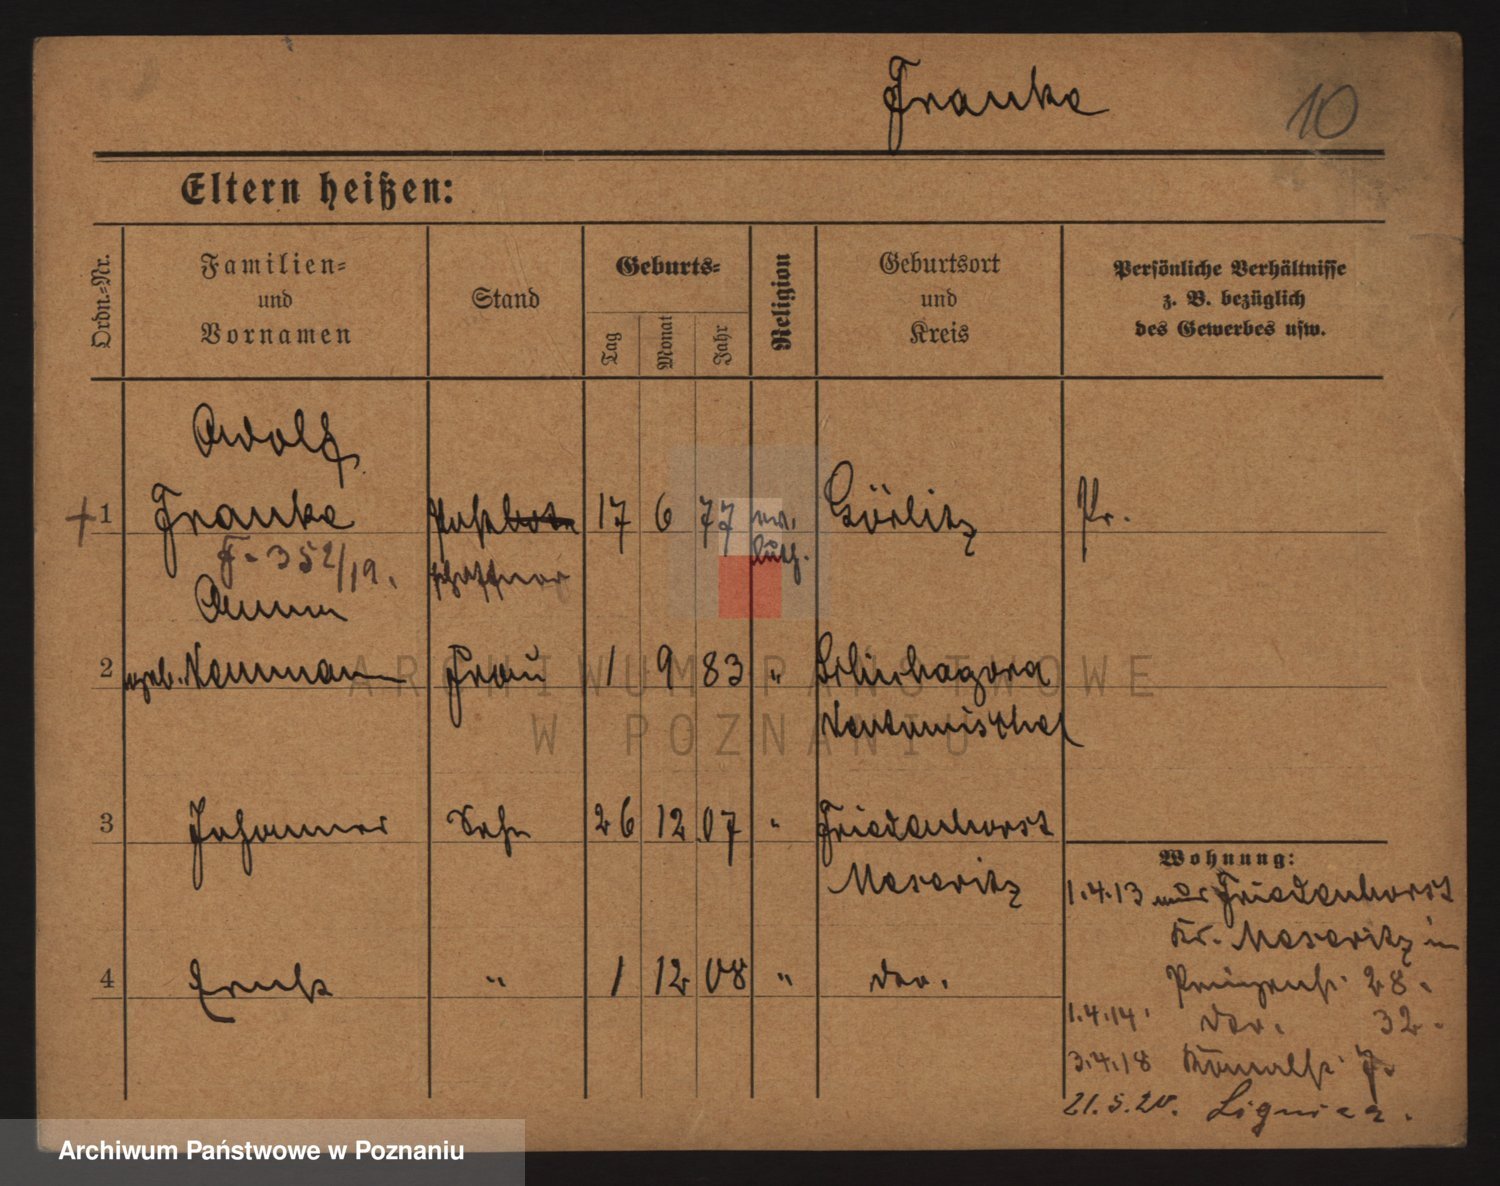 Franke
10
Eltern heißen:
Ordn.-Nr.
Familien-
und
Vornamen
Stand
Geburts-
Tag
Monat
Jahr
Religion
Geburtsort
und
Kreis
Persönliche Verhältnisse
z. B. bezüglich
des Gewerbes usw.
Adolf
+ 1 Franke Postbote 17 6 77 ev. Görlitz Pr.
F. 352/19. schaffner luth.
Anna
2 geb. Neumann Frau 1 9 83 "
Neutomischel
3 Johannes Sohn 26 12 07 " Friedenhorst
Meseritz
4 Ernst " 1 12 08 " do.
Wohnung:
1.4.13 aus Friedenhorst
Kr. Meseritz in
Prinzenst. 28.
1.4.14. do. 32.
3.4.18 7.
21.5.20. Liegnitz.
ARCHIWUM PAŃSTWOWE
W POZNANIU
Archiwum Państwowe w Poznaniu